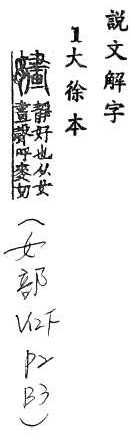 説文解字
1大徐本
嫿 靜好也从女
畫聲呼麥切
（女部 V12F P2 B3）